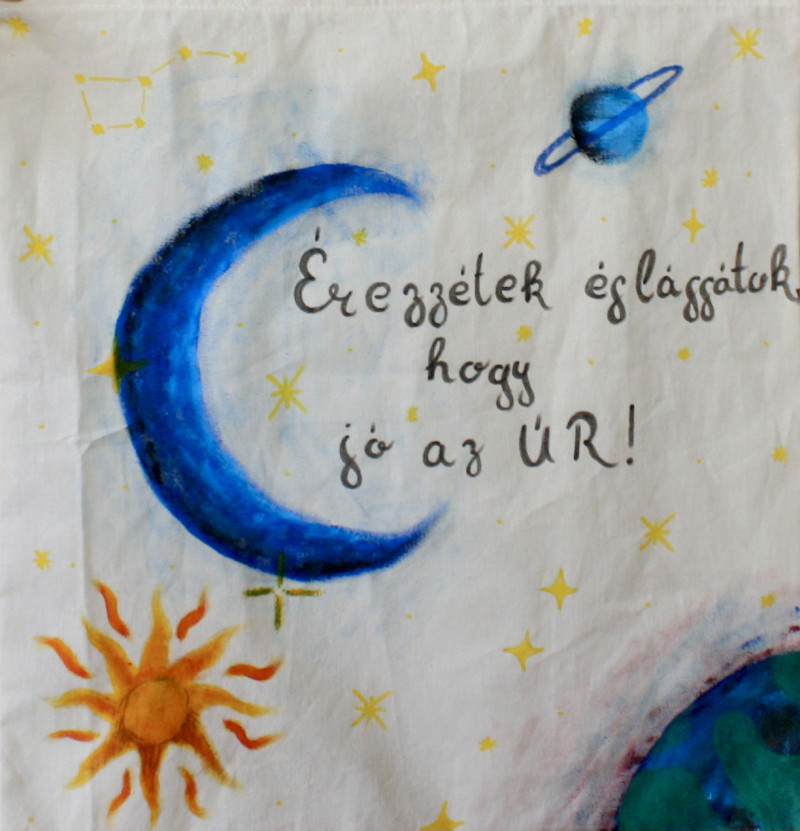 Érezzétek és lássátok,
hogy
jó az ÚR!